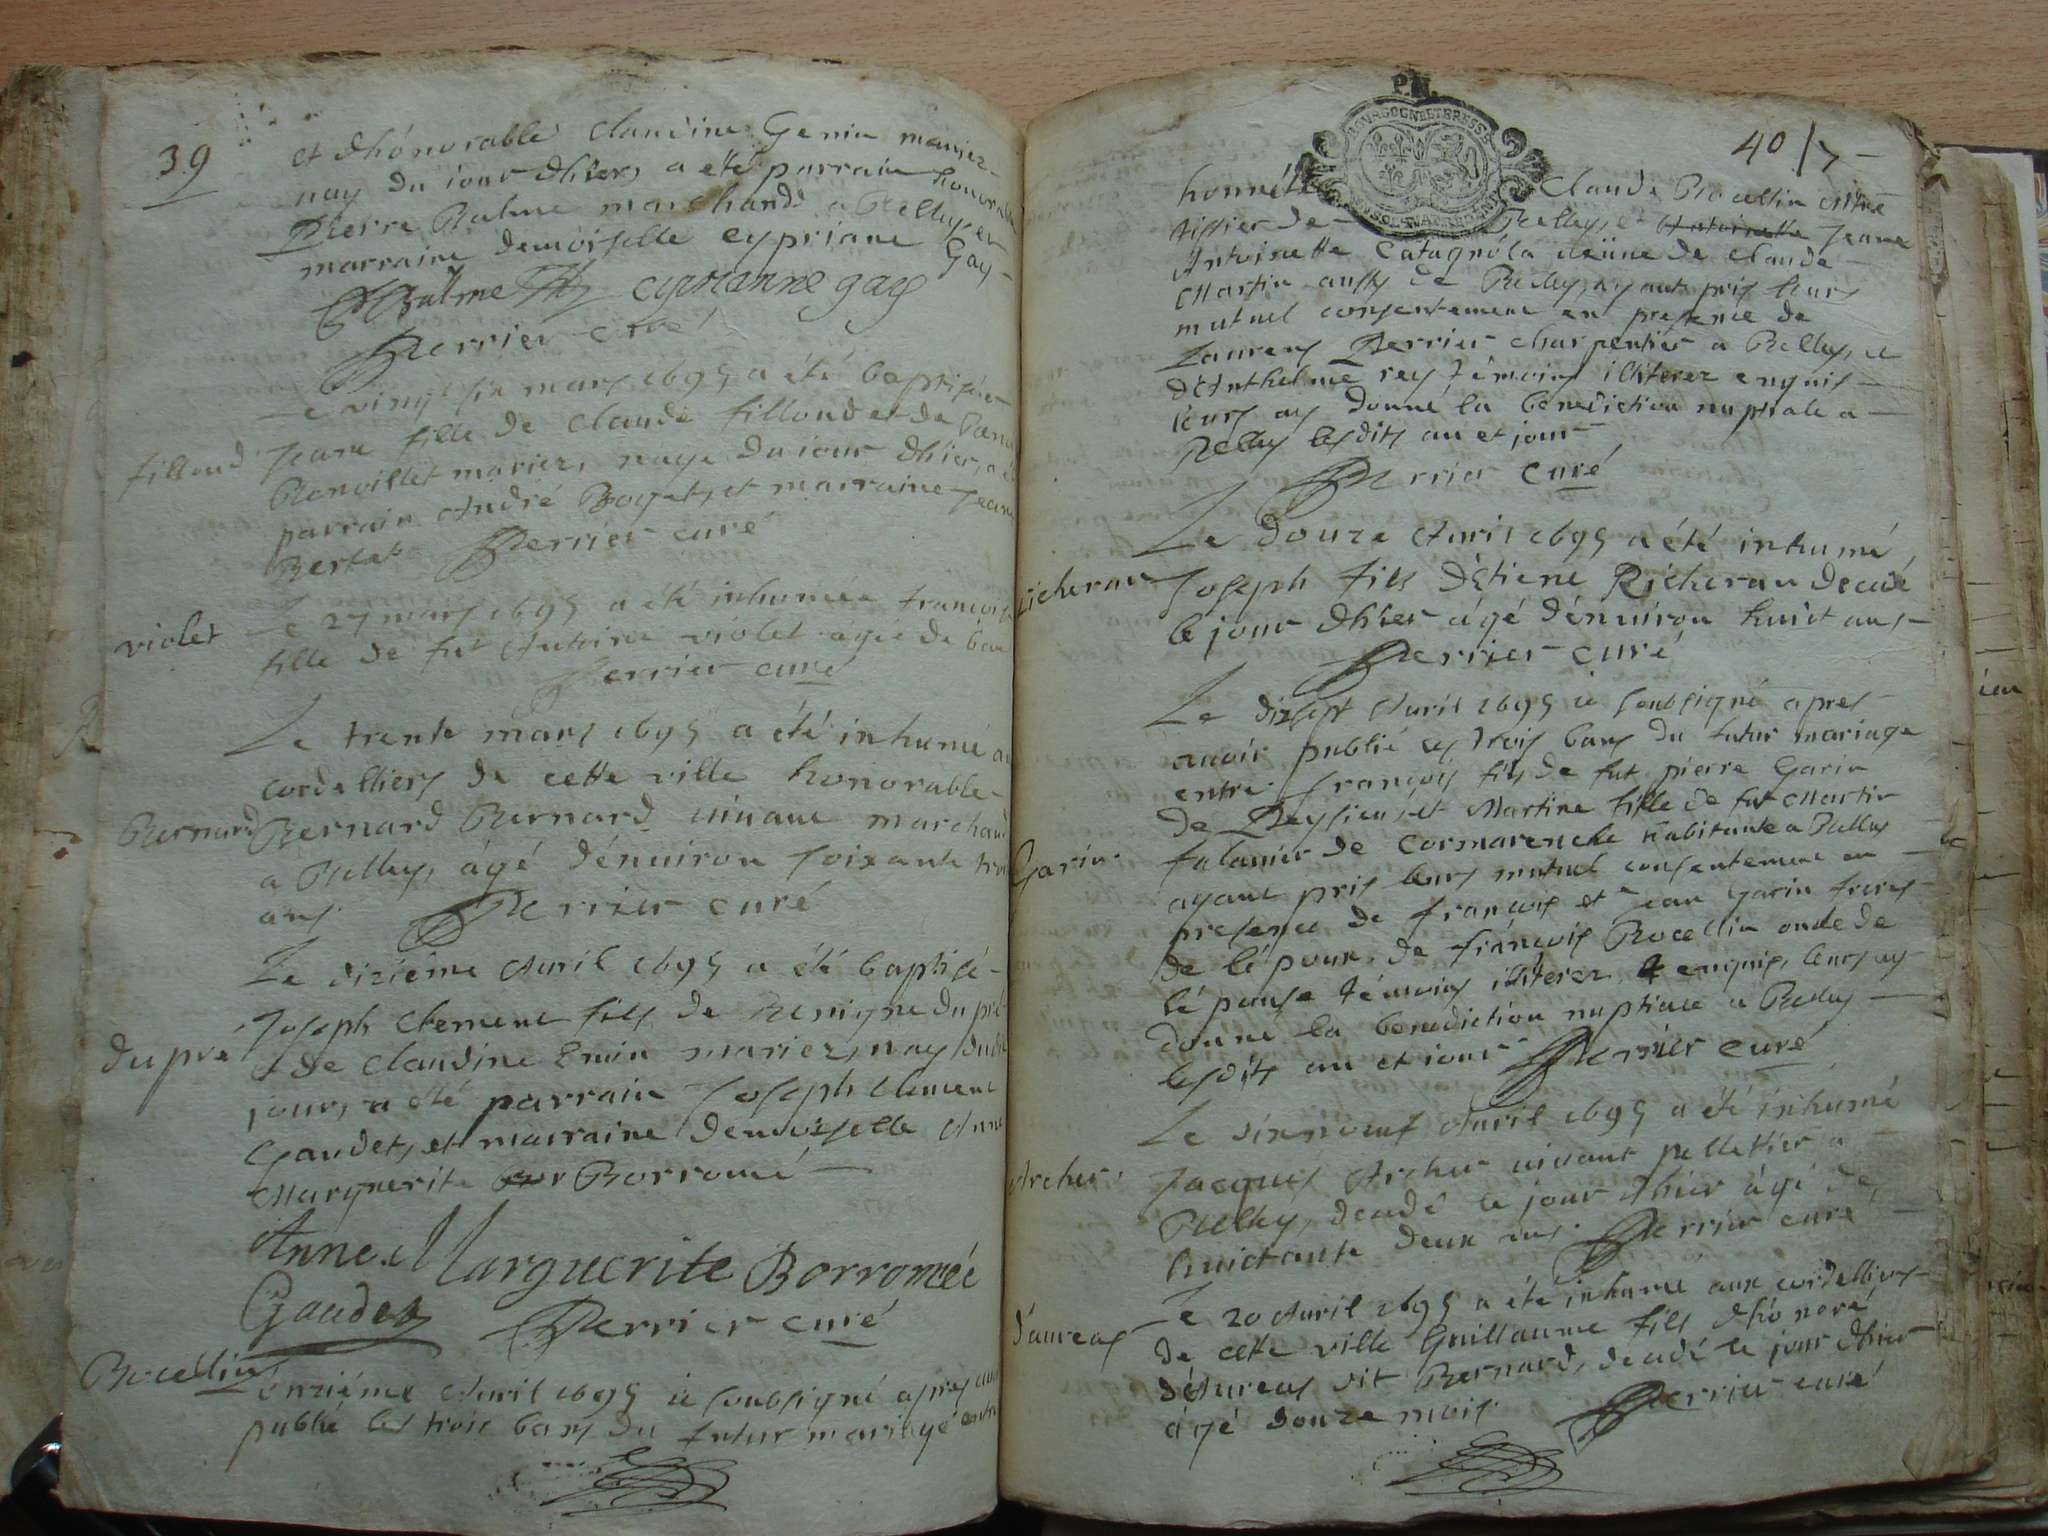 39
et dhónorable Claudine Genin mariez
nay du iour dhier, a été parrain honorable
Pierre Balme marchand a Belley, et
marraine demoiselle Cypriane Gay
Balme cyprianne gay
Perrier curé
fillond
Le vingt six mars 1695 a été baptisée
Jeane fille de Claude fillond et de
mariez, naye du iour dhier, a été
parrain André Boget, et marraine Jeane
Bertet Perrier curé
violet
Le 27 mars 1695 a été inhumée francoise
fille de fut Antoine violet agée de
Perrier curé
Bernard
Le trente mars 1695 a été inhumé au
cordelliers de cette ville honorable
Bernard Bernard vivant marchand
a Belley, ágé dénuiron soixante trois
ans. Perrier curé
du pré
Le diziéme Auril 1695 a été baptisé
Joseph Clement fils de Benigne du pré
et de Claudine Enin mariez, nay dudit
jour, a été parrain Joseph Clement
Gaudet, et marraine demoiselle Anne
Marguerite Borromé
Anne. Marguerite Borromée
Gaudet Perrier curé
Rocellin
onziéme Auril 1695 ie soubsigné apres auoir
publié les trois bans du futur mariage entre
40 / 7
honnéte Claude Rocellin maitre
tissier de Belley, et Antoinette Jeane
Antoinette Catagnóla veüue de Claude
Martin aussy de Belley, ayant pris leurs
mutuel consentement en presence de
Laurens Perrier charpentier a Belley, et
dAnthelme rey témoins illiterez enquis
leurs ay donné la benediction nuptiale a
Belley lesdits an et jour
Perrier curé
Richerau
Le douze Auril 1695 a été inhumé
Joseph fils dEtiene Richerau decedé
le jour dhier ágé dénuiron huict ans
Perrier curé
Garin
Le dixsept Auril 1695 ie soubsigné apres
auoir publié les trois bans du futur mariage
entre françois fils de fut pierre Garin
de Peysieu, et Martine fille de fut Martin
falanier de Cormarenche habitante a Belley
ayant pris leurs mutuel consentement en
presence de françois et Jean Garin freres
de lépoux, de françois Rocellin oncle de
lépouse témoins illiterez enquis, leurs ay
donné la benediction nuptiale a Belley
lesdits an et iour Perrier curé
Archer
Le dixneuf Auril 1695 a été inhumé
Jacques Archer vivant pelletier a
Belley, decedé le jour dhier ágé de
huictante deux ans. Perrier curé
d'aureas
Le 20 Auril 1695 a été inhumé aux cordelliers
de cette ville Guillaume fils dhónoré
dAureas dit Bernard, decedé le jour dhier
ágé douze mois. Perrier curé